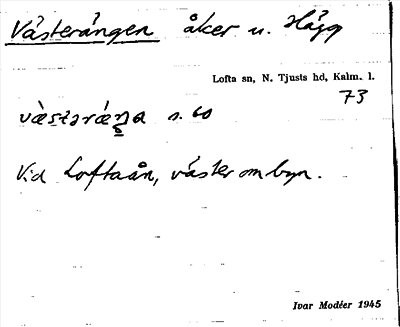 Västerängen åker u. Hägg
Lofta sn, N. Tjusts hd, Kalm. l.
73
s. 60
Vid Loftaån, väster om byn.
Ivar Modéer 1945